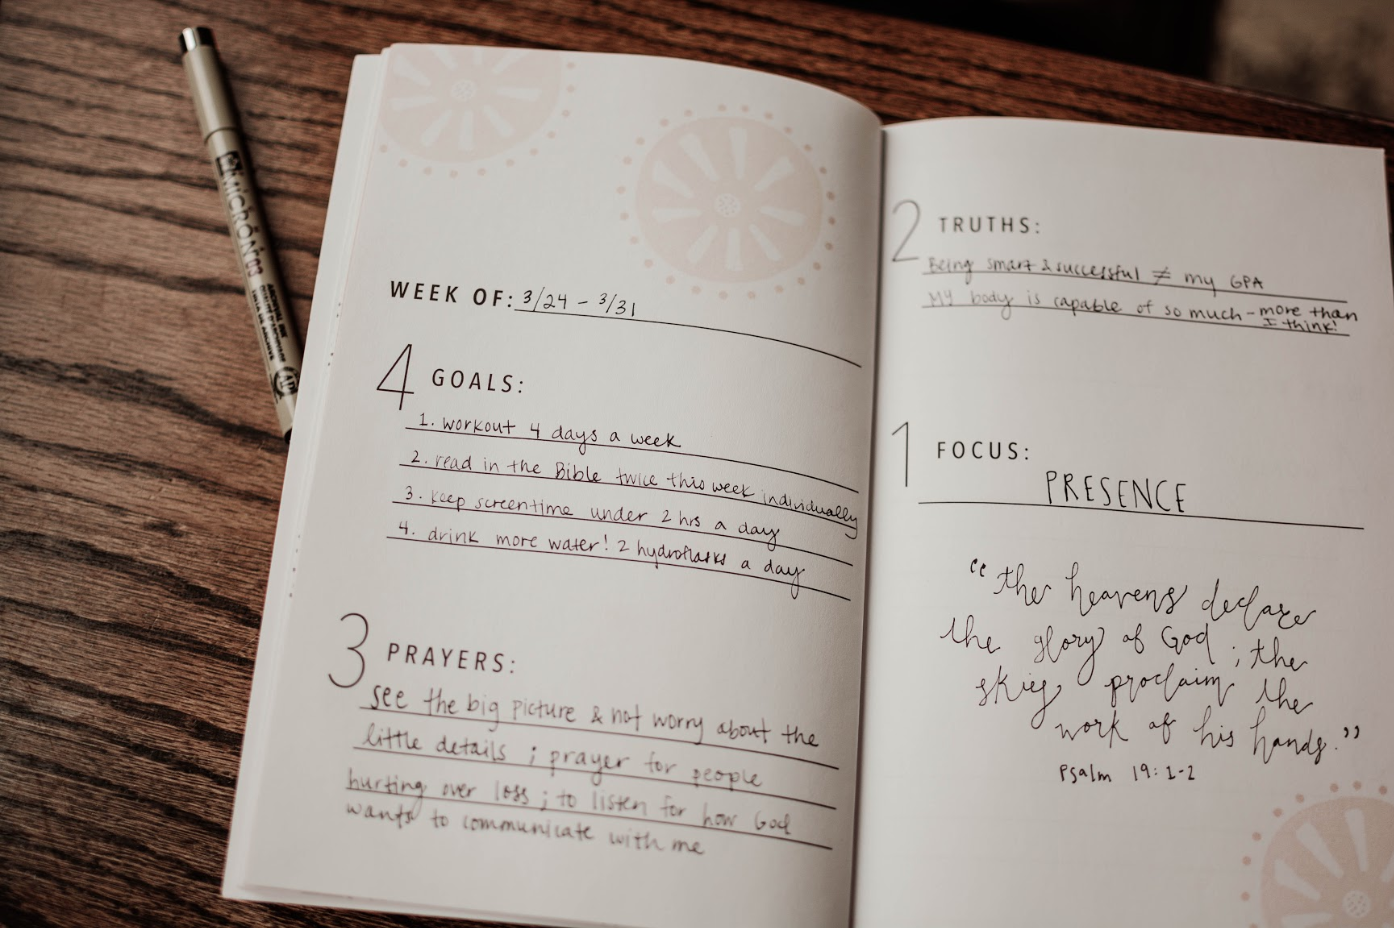 MICRON 03
WEEK OF: 3/24 - 3/31
4 GOALS:
1. workout 4 days a week
2. read in the Bible twice this week individually
3. keep screentime under 2 hrs a day
4. drink more water! 2 hydroflasks a day
3 PRAYERS:
see the big picture & not worry about the
little details ; prayer for people
hurting over loss ; to listen for how God
wants to communicate with me
2 TRUTHS:
Being smart & successful ≠ my GPA
My body is capable of so much - more than
I think!
1 FOCUS:
PRESENCE
"the heavens declare
the glory of God ; the
skies proclaim the
work of his hands."
Psalm 19:1-2